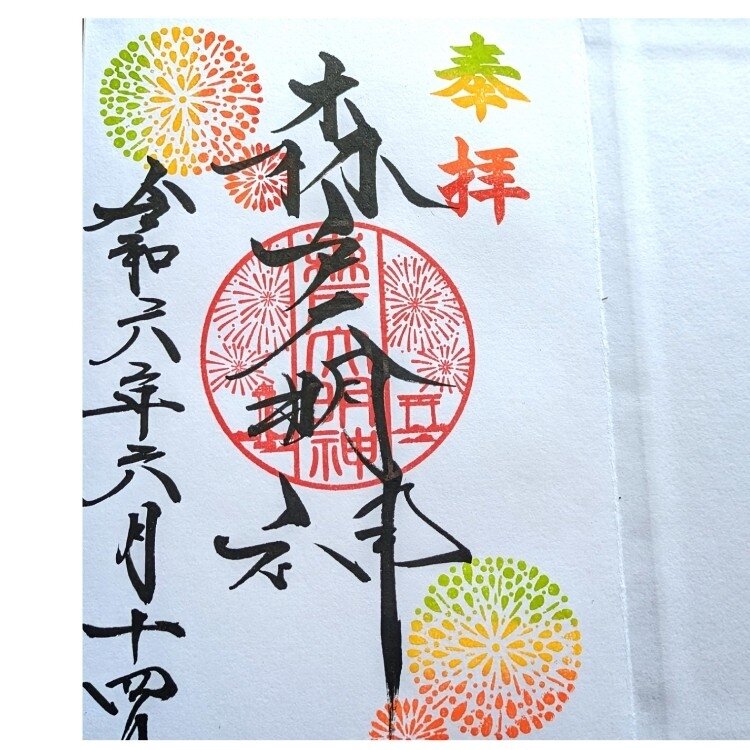 奉拝
森戸明神
森戸大明神
令和六年六月十四